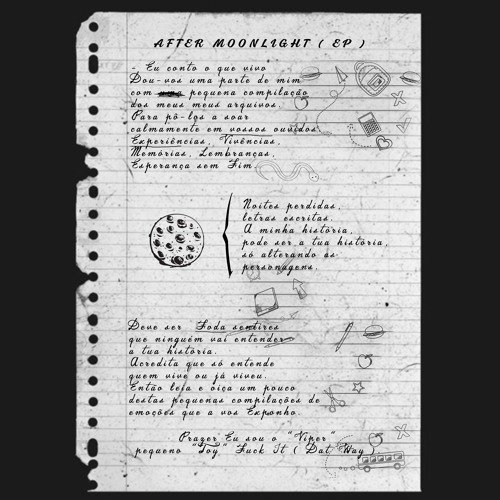 AFTER MOONLIGHT ( EP )
- Eu conto o que vivo
Dou-vos uma parte de mim
com pequena compilação
dos meus meus arquivos.
Para pô-los a soar
calmamente em vossos ouvidos.
Experiências, Vivências,
Memórias, Lembranças,
Esperança sem Fim
Noites perdidas,
letras escritas.
A minha história
pode ser a tua história,
só alterando as
personagens.
Deve ser Foda sentires
que ninguém vai entender
a tua história.
Acredita que só entende
quem vive ou já viveu.
Então leia e oiça um pouco
destas pequenas compilações de
emoções que a vos Exponho.
Prazer Eu sou o "Viper"
pequeno "Toy" Fuck It ( Dat Way )